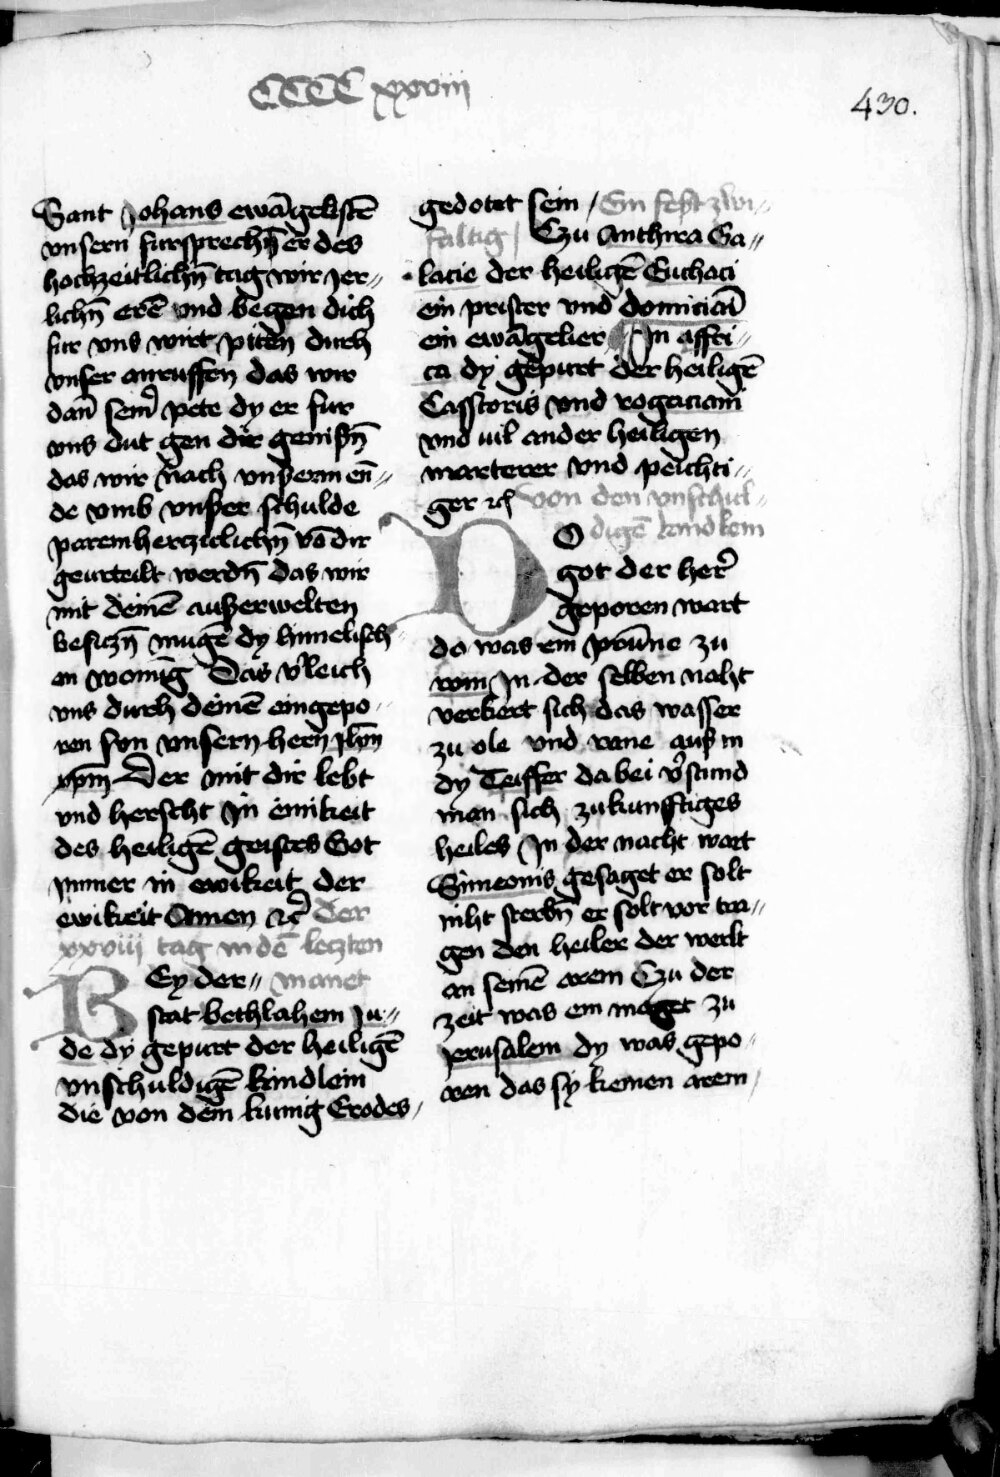 CCCC xxviij
430.
Sant Johans ewāgelistē
vnsern fursprechn̄ er des
hochzeitlichn̄ tag wir jer〃
lichn̄ erē vnd begen dich
fur vns wirt piten durch
vnser anruffen das wir
dan̄ seinͤ pete dy er fur
vns dut gen dir genißn̄
das wir nach vnßerm en̄〃
de vmb vnßer schulde
paremherczιclichn̄ vō dir
geurteilt werdn̄ das wir
mit deinē außerwelten
besiczn̄ mugē dy himelisch〃
en wonūg Das v̓leich
vns durch deinē eingepo〃
ren sun vnsern hern jhm̄
xpm̄ Der mit dir lebt
vnd herscht jn einikeit
des heiligē geistes Got
jmmer in ewikeit der
ewikeit Amen ꝛc̄ der
xxviij tag in dē leczten
BEy der〃 manet
stat bethlahem Ju〃
de dy gepurt der heiligē
vnschuldigē kindlein
die von dem kunig Erodes
gedotet sein / Ein fest zwi〃
faltig / Czu Anthira Ga〃
lacie der heiligē Euthaci
ein prister vnd domiciani
ein ewāgelier Jn affri〃
ca dy gepurt der heiligē
Casstoris vnd rogaciani
vnd vil ander heiligen
marterer vnd peichti〃
ger ꝛc von den vnschul〃
digē kindlein
DO
got der her̓
geporen wart
do was ein prūne zu
rom Jn der selben naht
verkert sich das wasser
zu ole vnd rane auß in
dy Teiffer da bei v̓stund
man sich zukunfftiges
heiles Jn der nacht wart
Simeonis gesaget er solt
niht sterbn̄ er solt vor tra〃
gen den heiler der werlt
an seinē arem Czu der
zeit was ein maget zu
jerusalem dy was gepo〃
ren das sy keinen arem